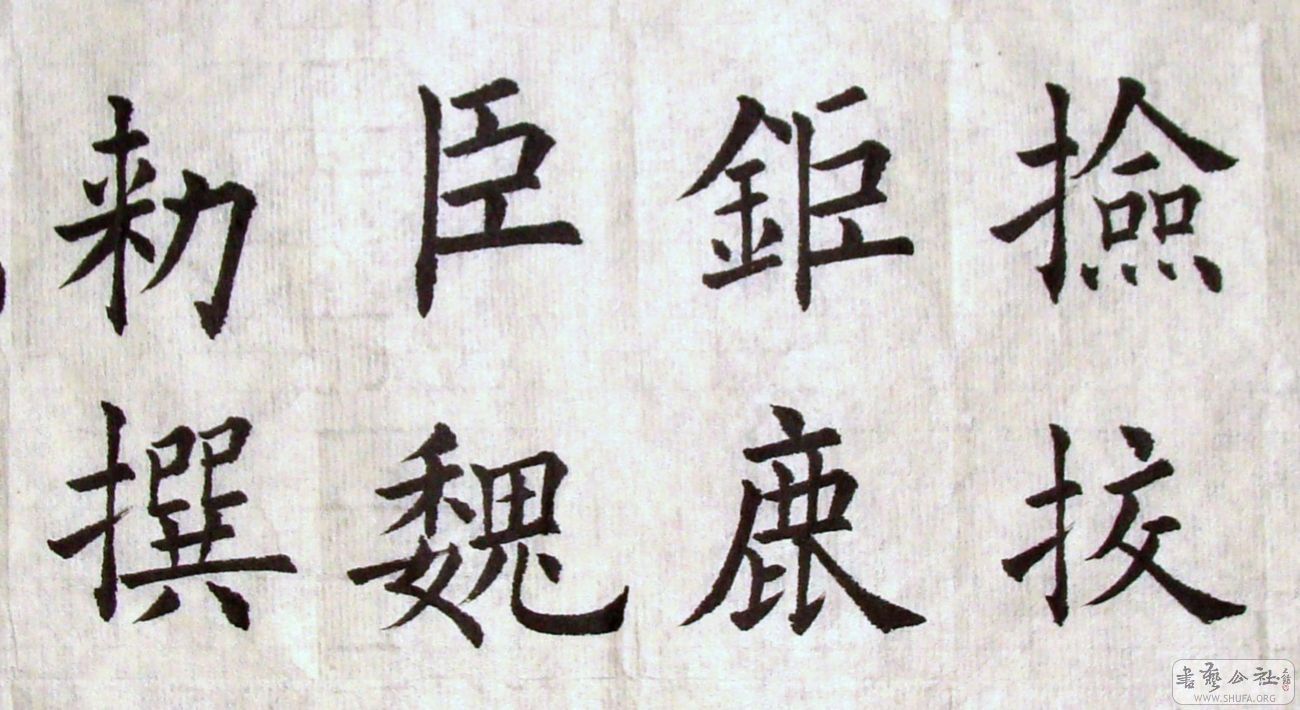 撿挍
鉅鹿
臣魏
勑撰
書藝公社
WWW.SHUFA.ORG